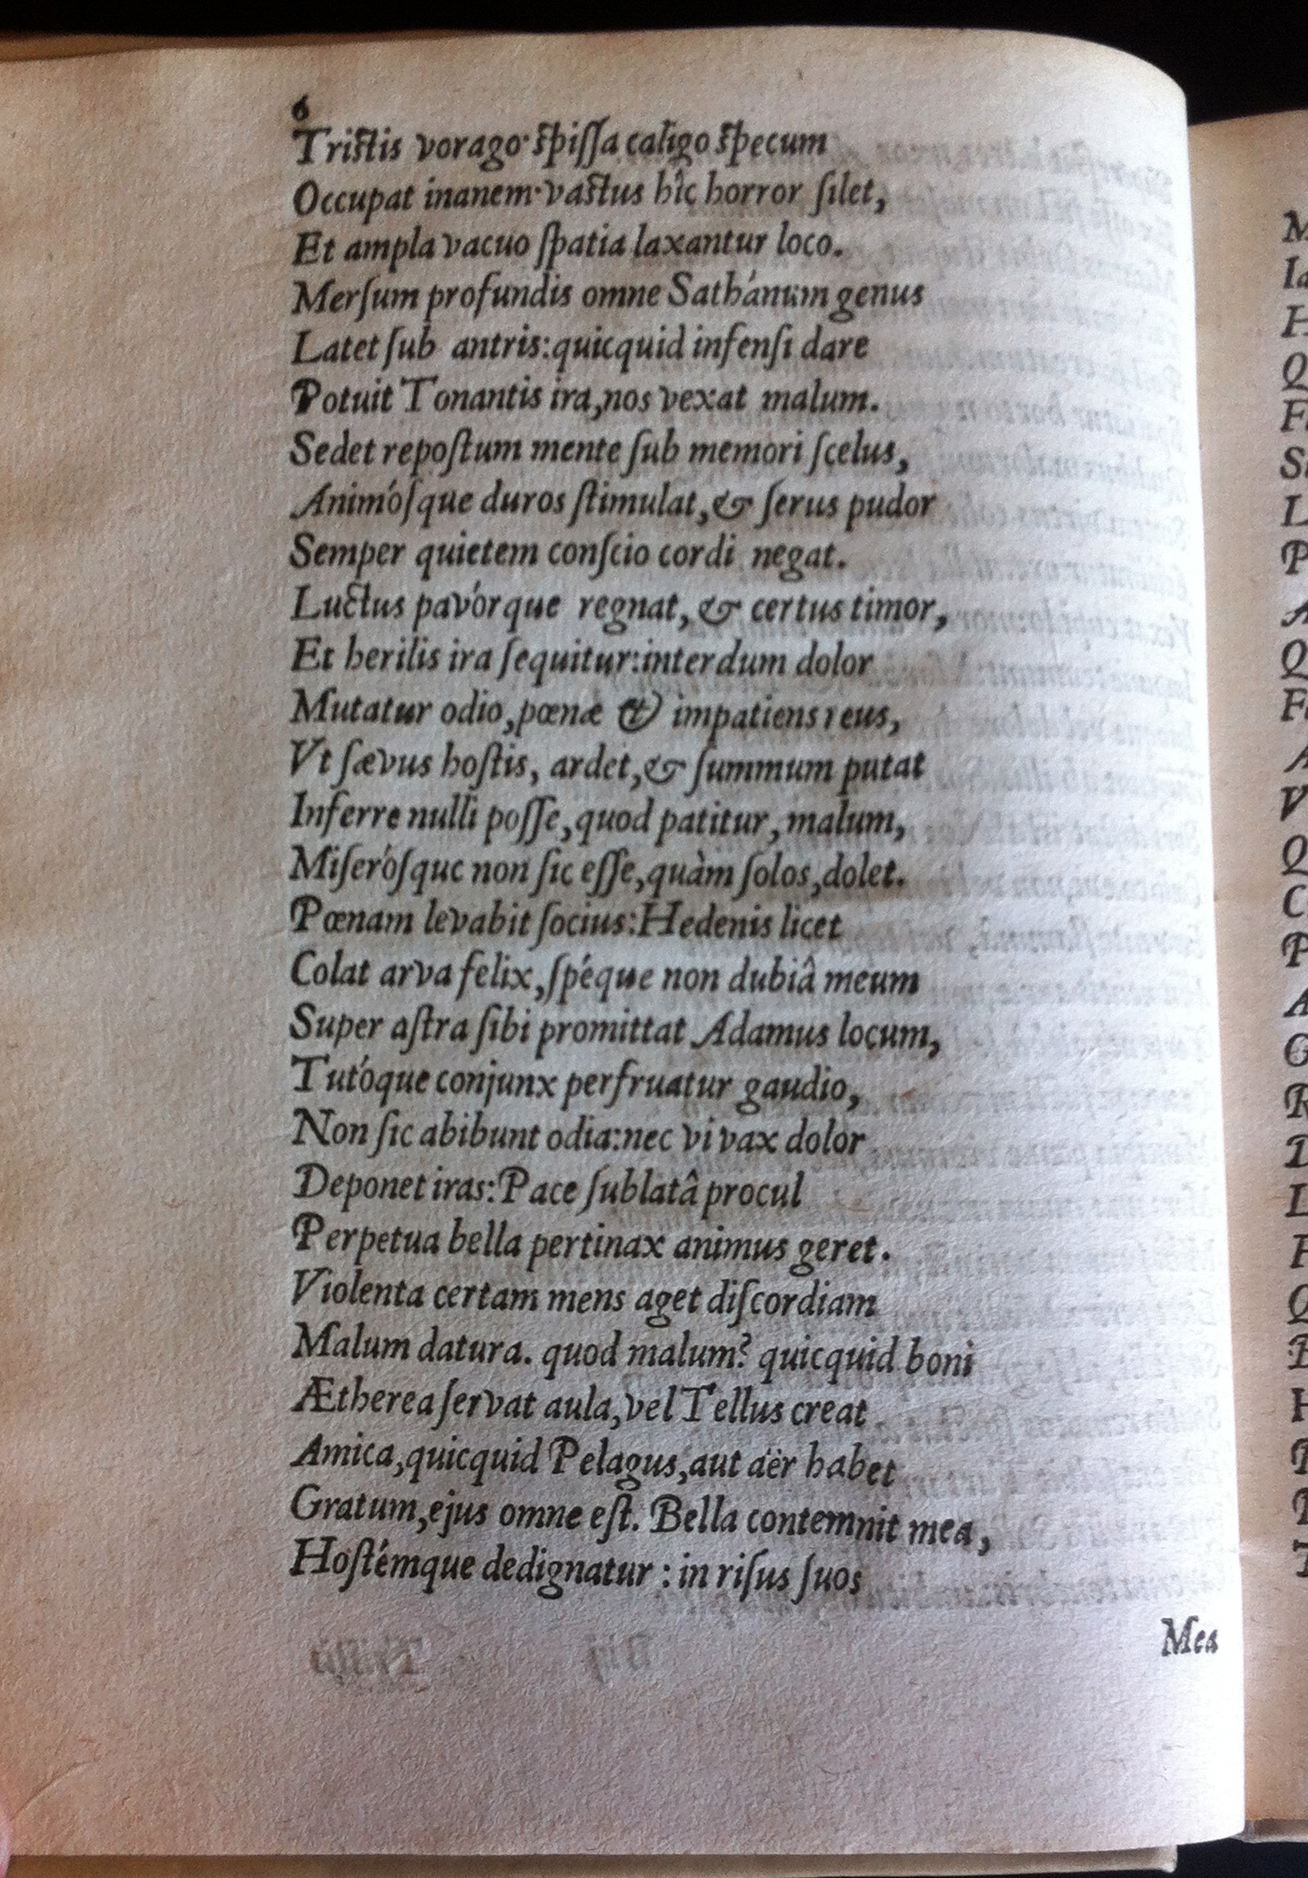 6
Tristis vorago· ſpiſſa caligo ſpecum
Occupat inanem· vastus hîc horror ſilet,
Et ampla vacuo ſpatia laxantur loco.
Merſum profundis omne Sathánum genus
Latet ſub antris: quicquid infenſi dare
Potuit Tonantis ira, nos vexat malum.
Sedet repoſtum mente ſub memori ſcelus,
Animóſque duros ſtimulat, & ſerus pudor
Semper quietem conſcio cordi negat.
Luctus pavórque regnat, & certus timor,
Et herilis ira ſequitur: interdum dolor
Mutatur odio, pœnæ & impatiens reus,
Vt ſævus hoſtis, ardet, & ſummum putat
Inferre nulli poſſe, quod patitur, malum,
Miſeróſque non ſic eſſe, quàm ſolos, dolet.
Pœnam levabit ſocius: Hedenis licet
Colat arva felix, ſpéque non dubiâ meum
Super aſtra ſibi promittat Adamus locum,
Tutóque conjunx perfruatur gaudio,
Non ſic abibunt odia: nec vivax dolor
Deponet iras: Pace ſublatâ procul
Perpetua bella pertinax animus geret.
Violenta certam mens aget diſcordiam
Malum datura. quod malum? quicquid boni
Ætherea ſervat aula, vel Tellus creat
Amica, quicquid Pelagus, aut aër habet
Gratum, ejus omne eſt. Bella contemnit mea,
Hoſtémque dedignatur : in riſus ſuos
Mea
M
Ia
H
Q
F
S
L
P
A
Q
F
A
V
Q
C
P
A
R
L
Q
H